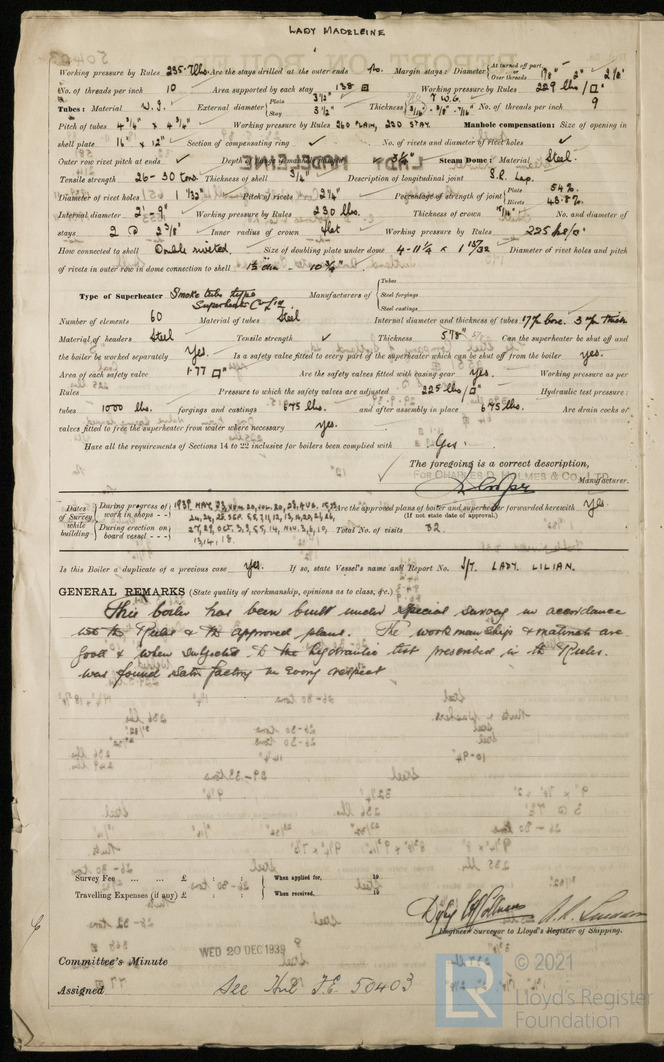 LADY MADELEINE
Working pressure by Rules 235.7 lbs. Are the stays drilled at the outer ends No. Margin stays: Diameter { At turned off part, Over threads 1 7/8" 2" 2 1/8"
No. of threads per inch 10 Area supported by each stay 138 Working pressure by Rules 229 lbs/□" 9
Tubes: Material W.I. External diameter { Plain Stay 3 1/2" 3 1/2" Thickness { 7 W.G. 5/16" - 3/8" - 7/16" No. of threads per inch
Pitch of tubes 4 3/4" x 4 3/4" Working pressure by Rules 260 PLAIN, 230 STAY. Manhole compensation: Size of opening in
shell plate 16" x 12" Section of compensating ring No. of rivets and diameter of rivet holes
Outer row rivet pitch at ends Depth Steam Dome: Material Steel.
Tensile strength 26-30 tons. Thickness of shell 3/4" Description of longitudinal joint S.R. Lap.
Diameter of rivet holes 1 1/32" Pitch of rivets 2 1/4" Percentage of strength of joint { Plate Rivets 54% 43.8%
Internal diameter 2'-9" Working pressure by Rules 230 lbs. Thickness of crown No. and diameter of
stays 2 @ 2 3/8" Inner radius of crown flat Working pressure by Rules 225
How connected to shell Double riveted. Size of doubling plate under dome Diameter of rivet holes and pitch
of rivets in outer row in dome connection to shell dia - 10 3/4".
Type of Superheater Smoke tube type Manufacturers of { Tubes
Superheater Co Ltd Steel forgings
Steel castings
Number of elements 60 Material of tubes Steel Internal diameter and thickness of tubes 17 m/m bore. 3 m/m thick
Material of headers Steel Tensile strength Thickness Can the superheater be shut off and
the boiler be worked separately Yes. Is a safety valve fitted to every part of the superheater which can be shut off from the boiler yes.
Area of each safety valve 1.77 □" Are the safety valves fitted with easing gear yes. Working pressure as per
Rules Pressure to which the safety valves are adjusted 225 lbs/□" Hydraulic test pressure:
tubes 1000 lbs. forgings and castings 675 lbs. and after assembly in place 675 lbs. Are drain cocks or
valves fitted to free the superheater from water where necessary yes.
Have all the requirements of Sections 14 to 22 inclusive for boilers been complied with Yes.
The foregoing is a correct description,
FOR CHARLES D. HOLMES & CO., LTD.
Manufacturer.
Dates of Survey while building { During progress of work in shops - - 1939 MAY, 23, Are the approved plans of boiler and superheater forwarded herewith yes
(If not state date of approval.)
During erection on board vessel - - - 27, 29, OCT. 3, NOV. 3, 6, 10, 13, 14, 18. Total No. of visits 32.
Is this Boiler a duplicate of a previous case yes. If so, state Vessel's name and Report No. S/T. LADY LILIAN.
GENERAL REMARKS (State quality of workmanship, opinions as to class, &c.)
This boiler has been built under special survey in accordance
with the Rules & the approved plans. The workmanship & materials are
good & when subjected to the hydraulic test presented in the Rules.
was found satisfactory in every respect
Survey Fee ... ... £ : : When applied for, 19
Travelling Expenses (if any) £ : : When received, 19
Engineer Surveyor to Lloyd's Register of Shipping.
WED 20 DEC 1939
Committee's Minute
Assigned See Hul F.E. 50403
LR © 2021
Lloyd's Register
Foundation